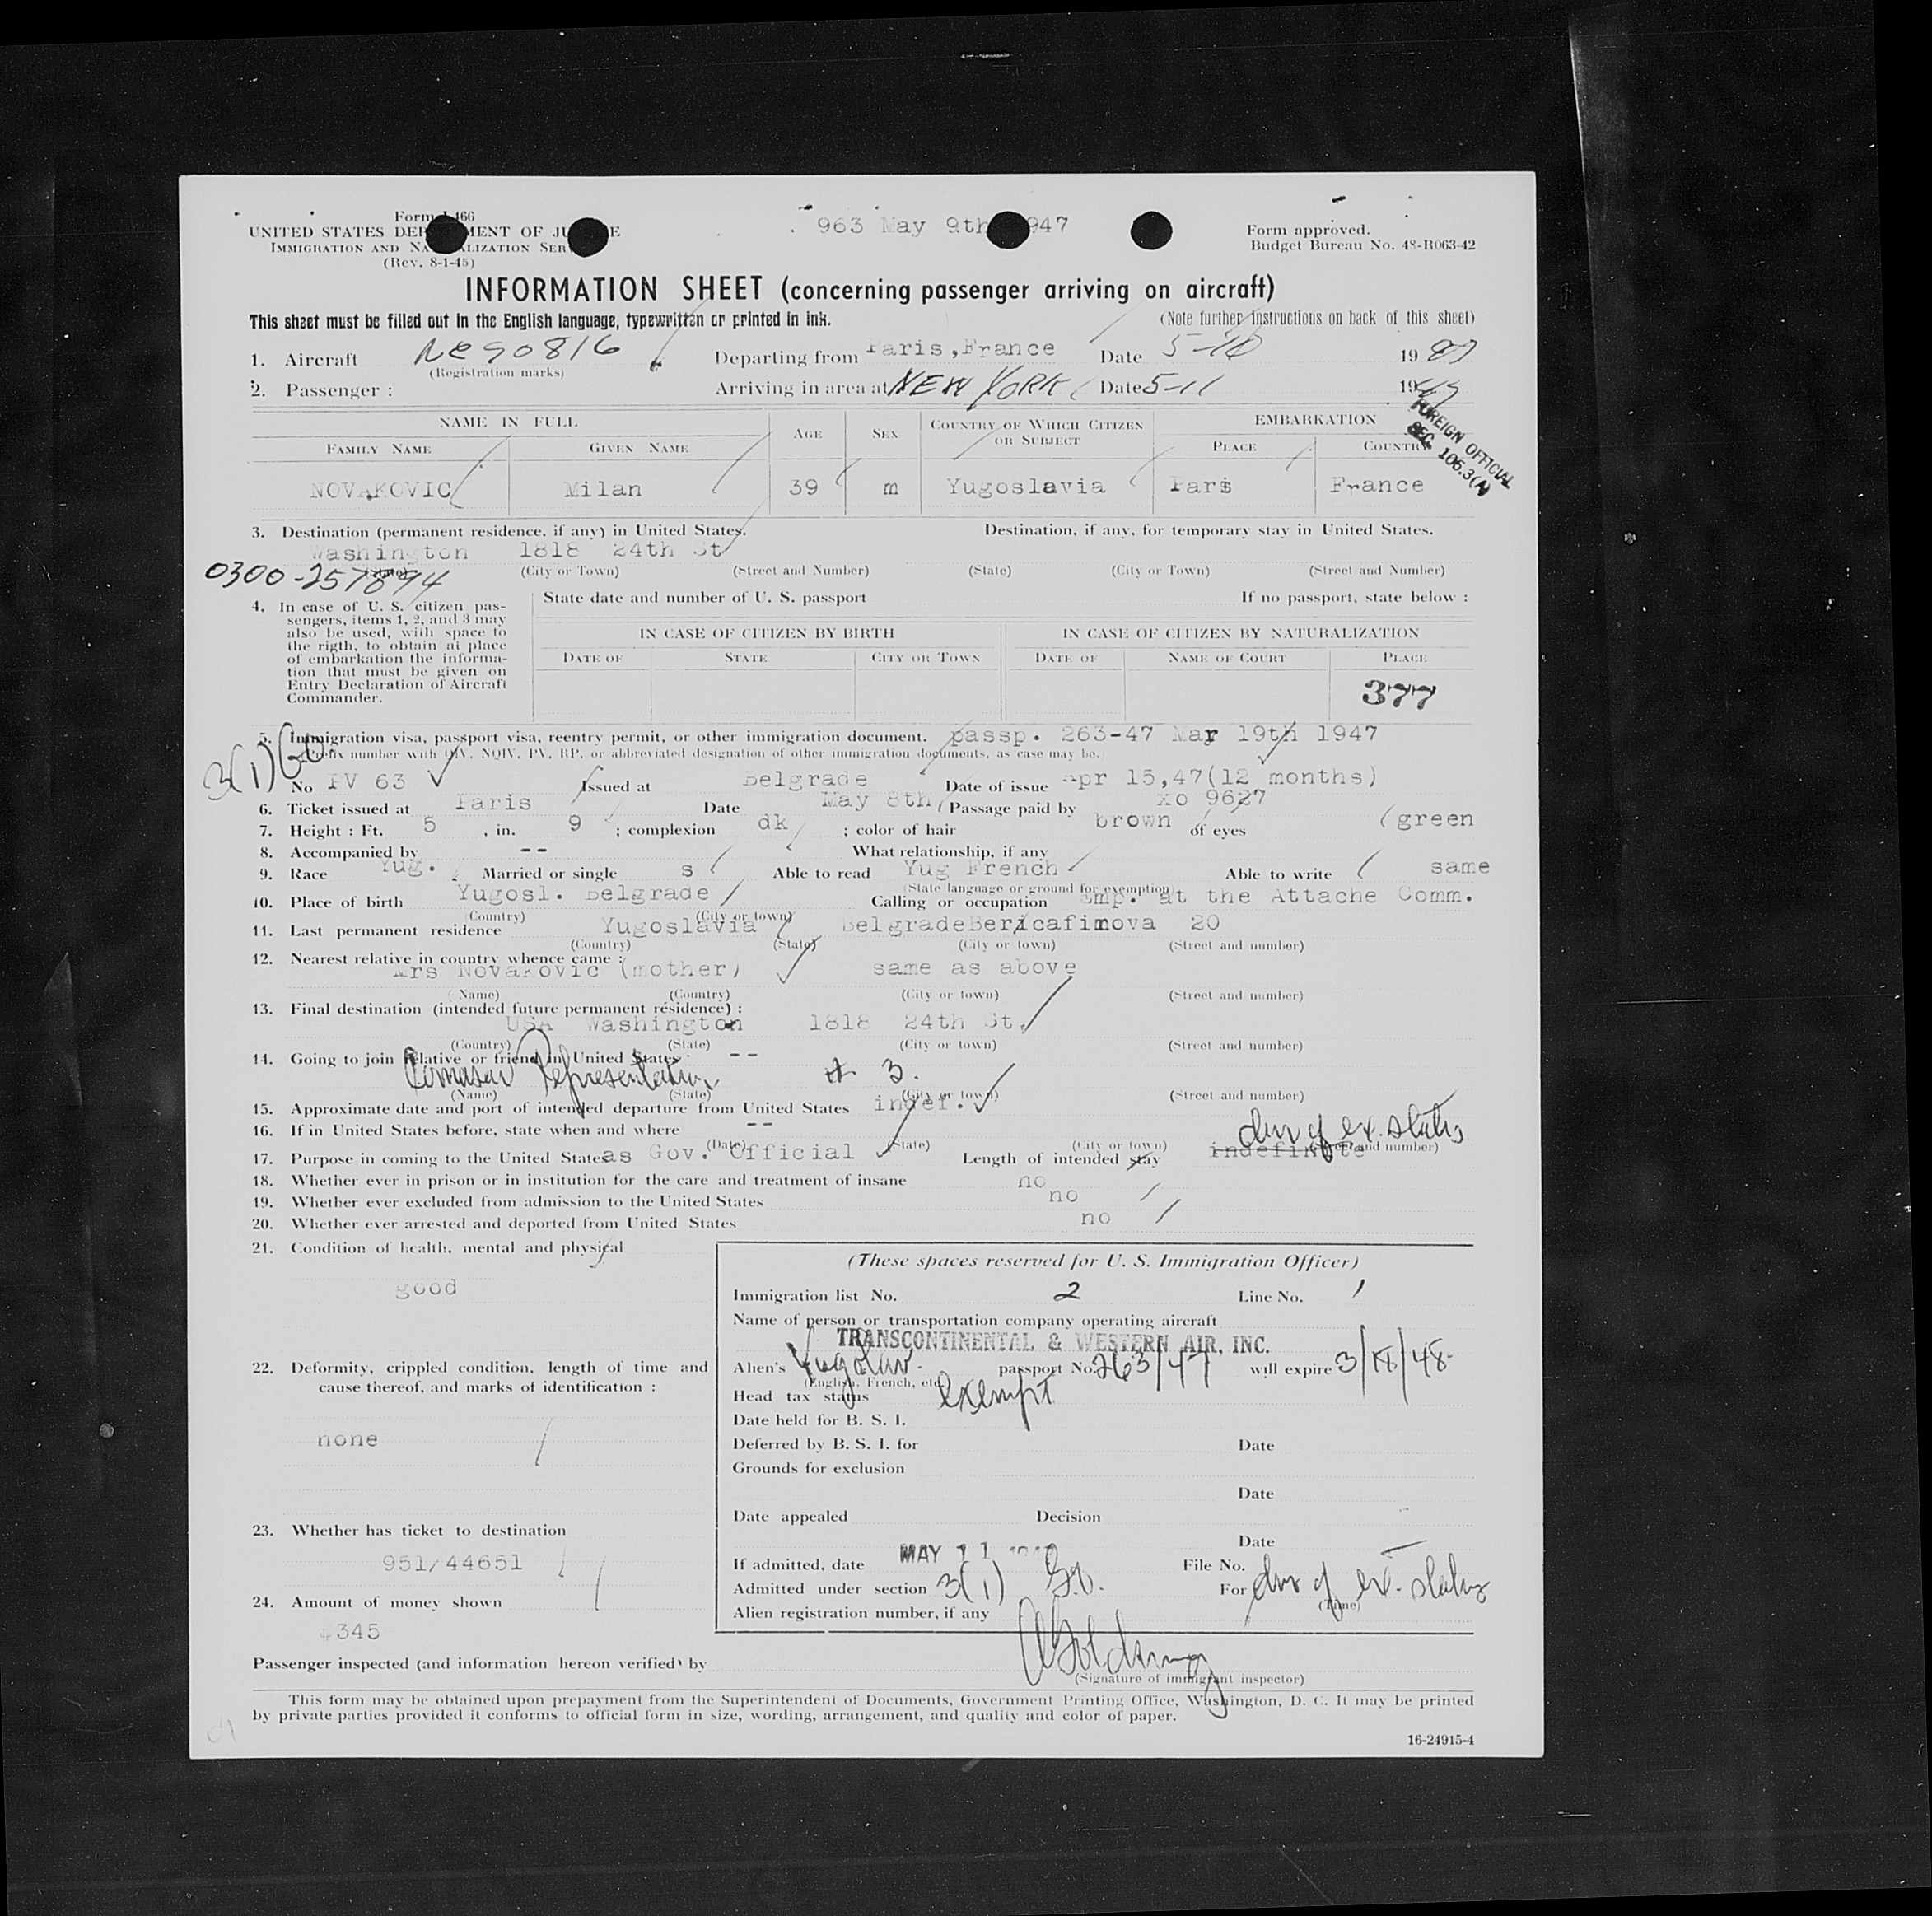 Form I-466
UNITED STATES DEPARTMENT OF JUSTICE
IMMIGRATION AND NATURALIZATION SERVICE
(Rev. 8-1-45)
963 May 9th 1947
Form approved.
Budget Bureau No. 48-R063-42
INFORMATION SHEET (concerning passenger arriving on aircraft)
This sheet must be filled out in the English language, typewritten or printed in ink.
(Note further instructions on back of this sheet)
1. Aircraft NC90816 Departing from Paris,France Date 5-10 19
(Registration marks)
2. Passenger : Arriving in area at NEW YORK Date 5-11 1947
FOREIGN OFFICIAL
SEC. 106.3(A)
NAME IN FULL AGE SEX COUNTRY OF WHICH CITIZEN OR SUBJECT EMBARKATION
FAMILY NAME GIVEN NAME PLACE COUNTRY
NOVAKOVIC Milan 39 m Yugoslavia Paris France
3. Destination (permanent residence, if any) in United States. Destination, if any, for temporary stay in United States.
Washington 1818 24th St
0300-257894
(City or Town) (Street and Number) (State) (City or Town) (Street and Number)
4. In case of U. S. citizen pas-
sengers, items 1, 2, and 3 may
also be used, with space to
the rigth, to obtain at place
of embarkation the informa-
tion that must be given on
Entry Declaration of Aircraft
Commander.
State date and number of U. S. passport If no passport, state below :
IN CASE OF CITIZEN BY BIRTH IN CASE OF CITIZEN BY NATURALIZATION
DATE OF STATE CITY OR TOWN DATE OF NAME OF COURT PLACE
377
5. Immigration visa, passport visa, reentry permit, or other immigration document. passp. 263-47 Mar 19th 1947
Prefix number with QIV, NQIV, PV, RP, or abbreviated designation of other immigration documents, as case may be.
3(1)
No PV 63 Issued at Belgrade Date of issue Apr 15,47(12 months)
6. Ticket issued at Paris Date May 8th Passage paid by xo 9627
7. Height : Ft. 5 , in. 9 ; complexion dk ; color of hair brown of eyes green
8. Accompanied by -- What relationship, if any
9. Race Yug. Married or single s Able to read Yug French Able to write same
(State language or ground for exemption)
10. Place of birth Yugosl. Belgrade Calling or occupation Emp. at the Attache Comm.
(Country) (City or town)
11. Last permanent residence Yugoslavia BelgradeBericafimova 20
(Country) (State) (City or town) (Street and number)
12. Nearest relative in country whence came :
Mrs Novakovic (mother) same as above
(Name) (Country) (City or town) (Street and number)
13. Final destination (intended future permanent résidence) :
USA Washington 1818 24th St.
(Country) (State) (City or town) (Street and number)
14. Going to join relative or friend in United States --
Representation # 3.
(Name) (State) (City or town) (Street and number)
15. Approximate date and port of intended departure from United States indef.
16. If in United States before, state when and where --
(Date) (State) (City or town) (Street and number)
dur of ex. status
17. Purpose in coming to the United States as Gov. Official Length of intended stay indefinite
18. Whether ever in prison or in institution for the care and treatment of insane no
19. Whether ever excluded from admission to the United States no
20. Whether ever arrested and deported from United States no
21. Condition of health, mental and physical
good
22. Deformity, crippled condition, length of time and
cause thereof, and marks of identification :
none
23. Whether has ticket to destination
951/44651
24. Amount of money shown
$345
(These spaces reserved for U. S. Immigration Officer)
Immigration list No. 2 Line No. 1
Name of person or transportation company operating aircraft
TRANSCONTINENTAL & WESTERN AIR, INC.
Alien's Yugoslav passport No. 263/47 will expire 3/18/48
(English, French, etc.)
Head tax status exempt
Date held for B. S. I.
Deferred by B. S. I. for Date
Grounds for exclusion
Date
Date appealed Decision
Date
If admitted, date MAY 11 1947 File No.
Admitted under section 3(1) For dur of ex. status
(Time)
Alien registration number, if any
Passenger inspected (and information hereon verified) by
(Signature of immigrant inspector)
This form may be obtained upon prepayment from the Superintendent of Documents, Government Printing Office, Washington, D. C. It may be printed
by private parties provided it conforms to official form in size, wording, arrangement, and quality and color of paper.
16-24915-4